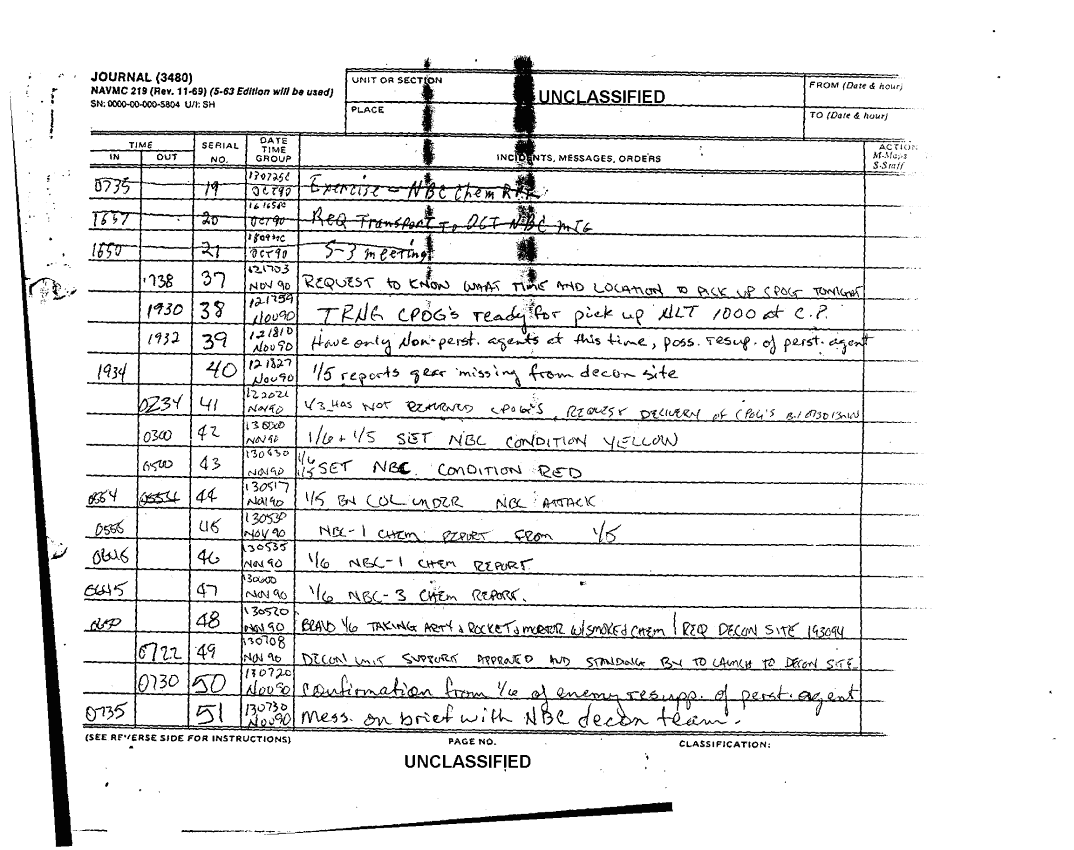 JOURNAL (3480)
NAVMC 219 (Rev. 11-69) (5-63 Edition will be used)
SN: 0000-00-000-5804 U/I: SH
UNIT OR SECTION
UNCLASSIFIED
FROM (Date & hour)
PLACE
TO (Date & hour)
TIME
IN OUT
SERIAL NO.
DATE TIME GROUP
INCIDENTS, MESSAGES, ORDERS
ACTION
S-Staff
0735 19 OCT90 Exercise - NBC Chem
1657 20 OCT90 REQ Transport To DGT NBC MTG
1650 21 OCT90 S-3 meeting
1738 37 121703 NOV 90 REQUEST TO KNOW WHAT TIME AND LOCATION TO PICK UP CPOG TONIGHT
1930 38 121759 Nov90 TRNG CPOG's ready for pick up NLT 1000 at C.P.
1932 39 121810 Nov90 Have only Non-perst. agents at this time, poss. resup. of perst. agent
1934 40 121827 Nov90 1/5 reports gear missing from decon site
0234 41 122021 NOV90 1/3 HAS NOT RETURNED CPOG'S, REQUEST DELIVERY OF CPOG'S
0300 42 NOV 90 1/6 + 1/5 SET NBC CONDITION YELLOW
0500 43 130430 NOV90 1/6 1/5 SET NBC CONDITION RED
0554 0554 44 130517 NOV90 1/5 BN COL UNDER NBC ATTACK
45 130530 NOV 90 NBC-1 CHEM REPORT FROM 1/5
46 130535 NOV 90 1/6 NBC-1 CHEM REPORT
0645 47 130600 NOV 90 1/6 NBC-3 CHEM REPORT.
48 130520 NOV 90 1/6 TAKING ARTY & ROCKET & MORTER W/SMOKE & CHEM / REQ DECON SITE 193094
0722 49 130708 NOV 90 DECON UNIT SUPPORT APPROVED AND STANDING BY TO LAUNCH TO DECON SITE.
0730 50 130720 Nov90 Confirmation from 1/6 of enemy resupp. of perst. agent
0735 51 130730 Nov90 Mess. on brief with NBC decon team.
(SEE REVERSE SIDE FOR INSTRUCTIONS)
PAGE NO.
CLASSIFICATION:
UNCLASSIFIED